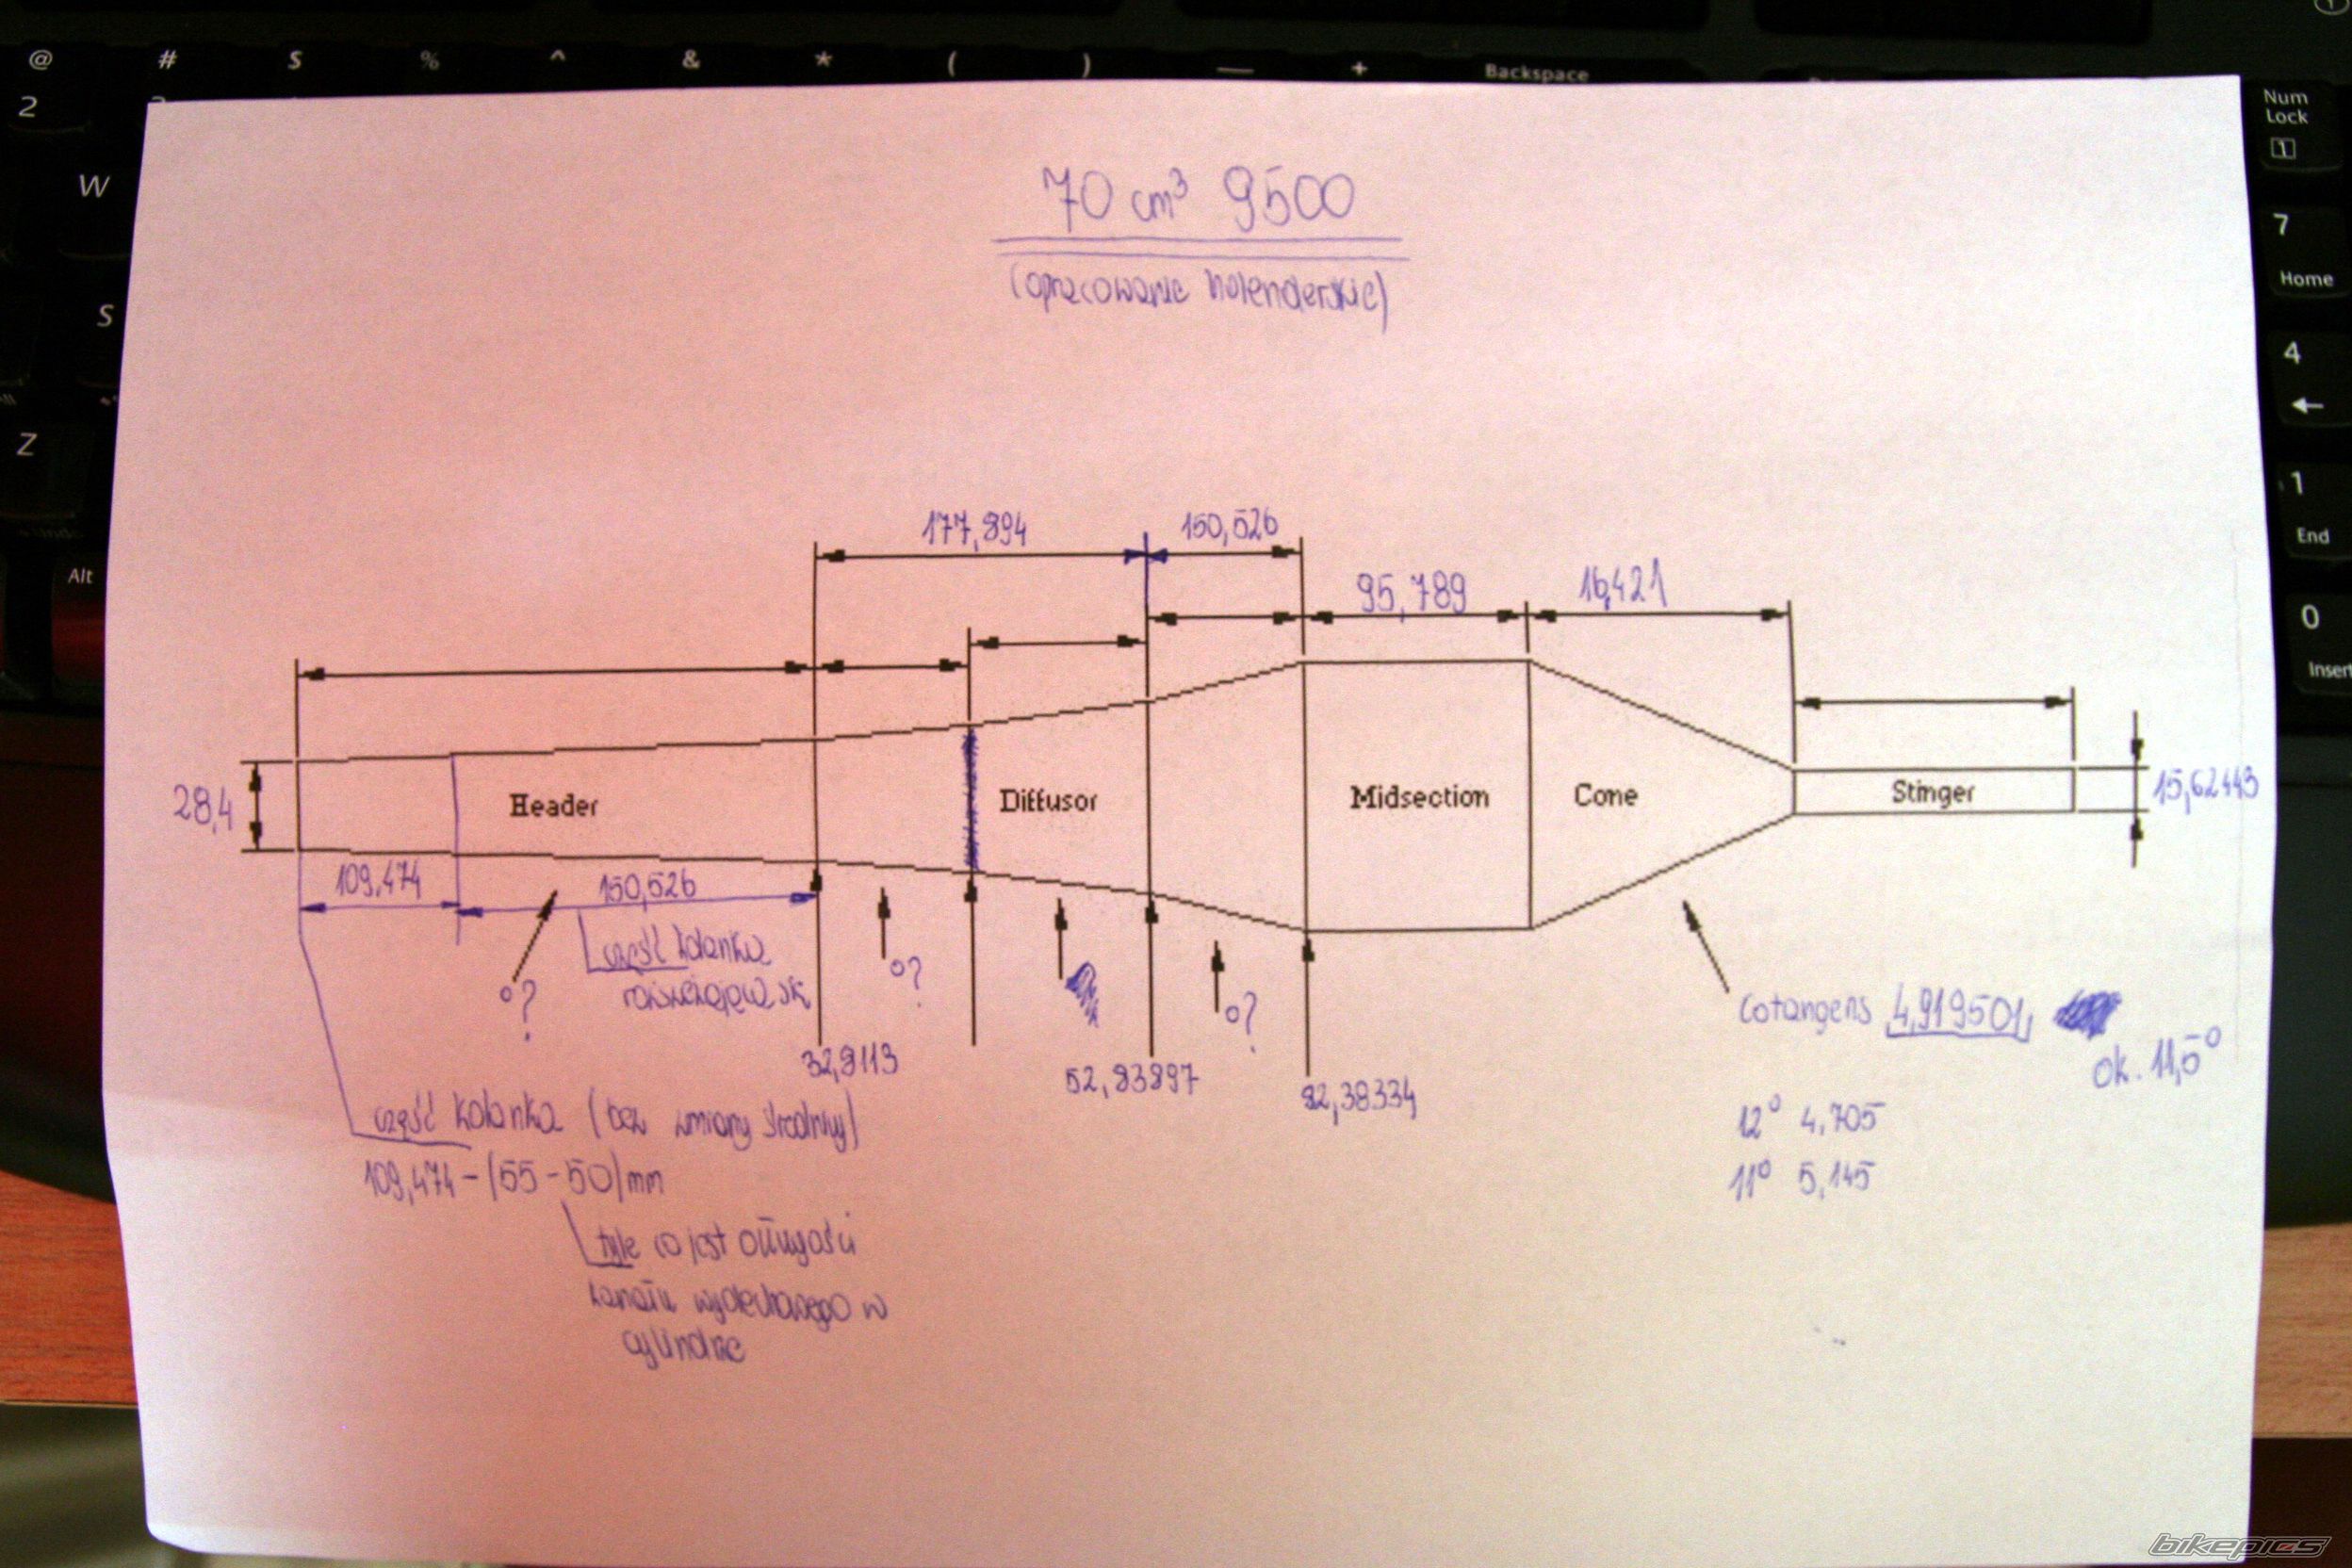 @ # $ % ^ & * ( ) — + Backspace
2
W
S
Z
Alt
Num
Lock
1
7
Home
4
←
1
End
0
Insert
70 cm³ 9500
(opracowanie holenderskie)
177,894
150,526
95,789
16,421
28,4
Header
Diffusor
Midsection
Cone
Stinger
15,62443
109,474
150,526
część kolanka
°?
°?
°?
32,8113
52,83897
82,38334
cotangens 4,919501
ok. 11,5°
12° 4,705
11° 5,145
część kolanka (bez zmiany średnicy)
109,474 - (55 - 50) mm
tyle co jest długości
kanału wydechowego w
cylindrze
bikepics